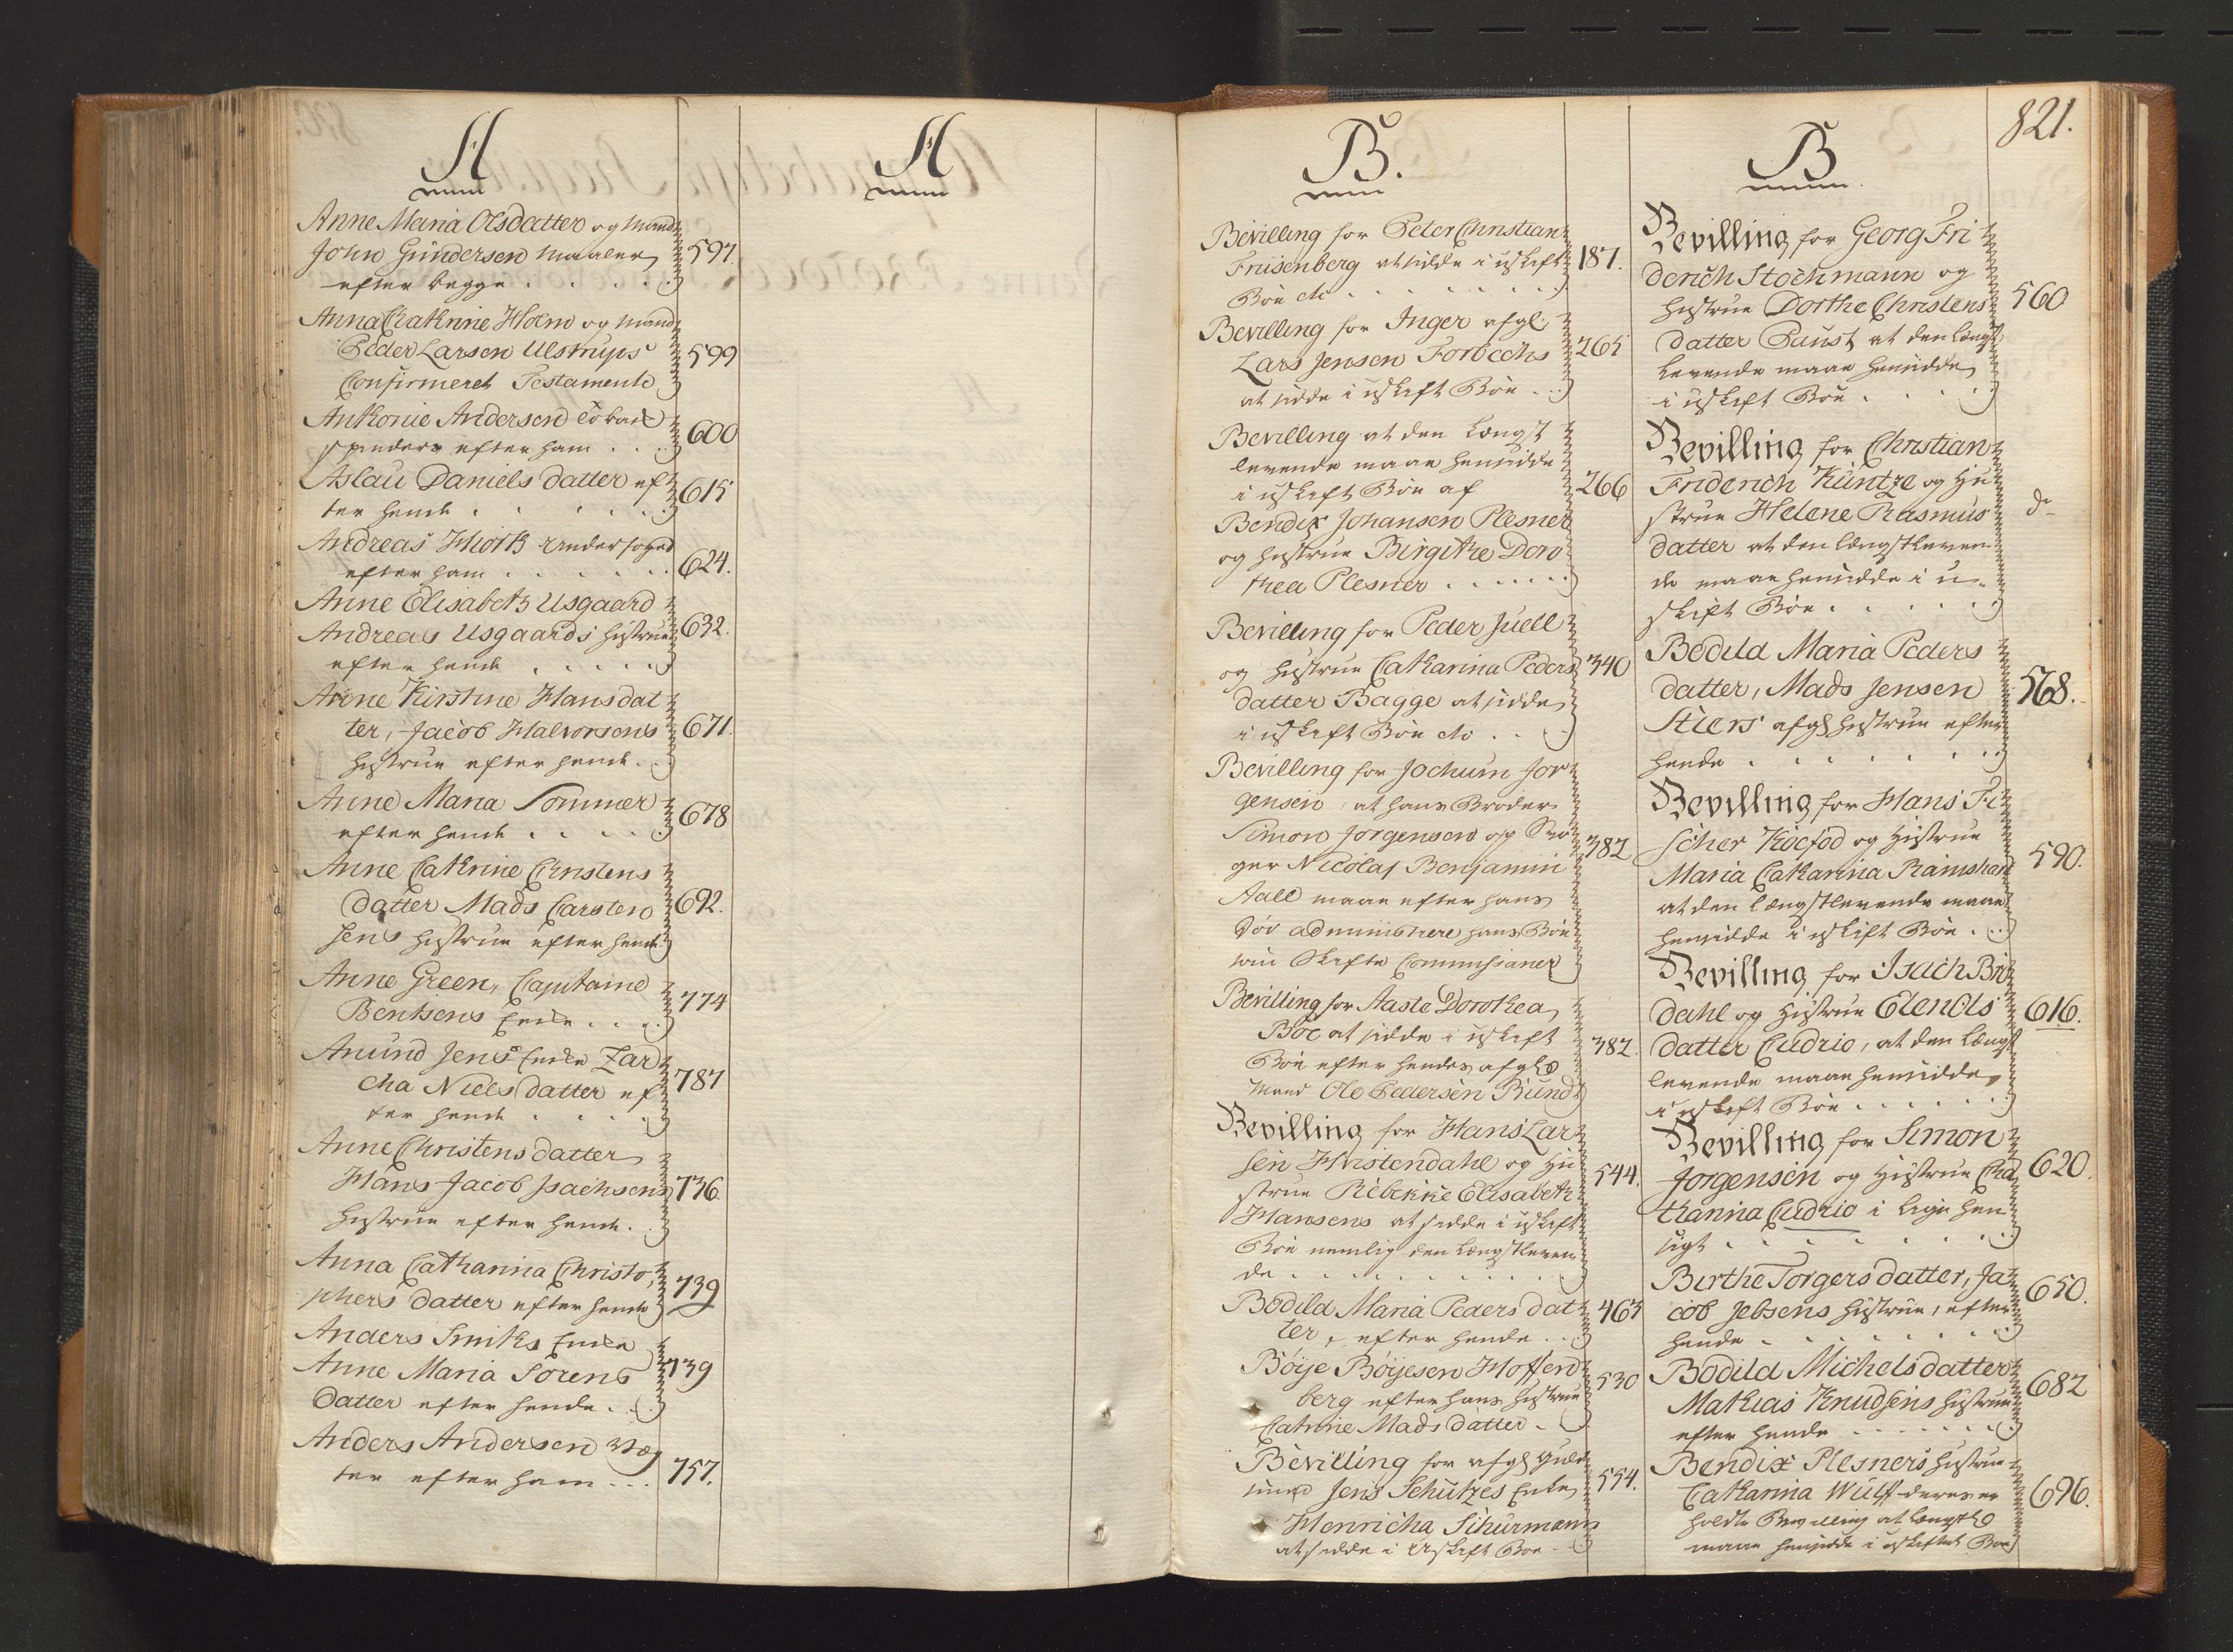 A
Anne Maria Olsdatter og Mand
John Gundersen Maaler
efter begge . . . . 597.
Anna Cathrine Holm og Mand
Peder Larsen Ulstrups
Confirmeret Testamente 599
Anthonie Andersen Tobak
spinder efter ham . . . 600
Aslau Daniels datter ef
ter hende . . . . . 615
Andreas Hiorth Underfoged
efter ham . . . . . . 624.
Anne Elisabeth Usgaard
Andreas Usgaards hustrue
efter hende . . . . . 632.
Anne Kirstine Hansdat
ter, Jacob Halvorsens
hustrue efter hende . . 671.
Anne Maria Sommer
efter hende . . . . . 678
Anne Cathrine Christens
datter Mads Carsten
sens hustrue efter hende 692.
Anne Green, Capitaine
Bentsens Enke . . . 774
Anund Jens Enke Zar
cha Niels datter ef
ter hende . . . . 787
Anne Christens datter
Hans Jacob Isachsens
hustrue efter hende . . 736.
Anna Catharina Christo,
phers datter efter hende 739
Anders Smiths Enke
Anne Maria Sørens
datter efter hende . . 739
Anders Andersen Væg
ter efter ham . . . 757.
A
B.
Bevilling for Peter Christian
Friisenberg at sidde i uskift
Boe etc . . . . . . . 187.
Bevilling for Inger afgl.
Lars Jensen Forbechs
at sidde i uskift Boe . . 265
Bevilling at den Længst
levende maae hensidde
i uskift Boe af
Bendix Johansen Plesner
og hustrue Birgithe Doro
thea Plesner . . . . . . 266
Bevilling for Peder Juell
og hustrue Catharina Peders
datter Bagge at sidde
i uskift Boe etc . . . 340
Bevilling for Jochum Jør
gensen at hans Broder
Simon Jørgensen og Svo
ger Nicolaj Benjamin
Aall maae efter hans
Død administrere hans Boe
som Skifte Commissarier 382
Bevilling for Aaste Dorothea
Boe at sidde i uskift
Boe efter hendes afgl.
Mand Ole Pedersen Bund 382.
Bevilling for Hans Lar
sen Hvistendahl og Hu
strue Rebekke Elisabeth
Hansens at sidde i uskift
Boe nemlig den Længstleven
de . . . . . . . . . 544.
Bodild Maria Peders dat
ter, efter hende . . . 463
Böije Böijesen Hoffen
berg efter hans hustrue
Catrine Mads datter . 530
Bevilling for afgl. Guld
smed Jens Schützes Enke
Henricha Schurmann
at sidde i Uskift Boe . . 554.
821.
B
Bevilling for Georg Fri
derich Stochmann og
hustrue Dorthe Christens
datter Paust at den Længst
levende maae hensidde
i uskift Boe . . . . 560
Bevilling for Christian
Friderich Kuntze og Hu
strue Helene Rasmus
datter at den længstleven
de maae hensidde i u-
skift Boe . . . . . . do
Bodild Maria Peders
datter, Mads Jensen
Stiers afgl. hustrue efter
hende . . . . . . . 568.
Bevilling for Hans Fi
scher Kocfod og hustrue
Maria Catharina Ramshart
at den længstlevende maae
hensidde i uskift Boe . . 590.
Bevilling for Isach Bro
dahl og hustrue Elen Ols
datter Cudrio, at den Længst
levende maae hensidde
i uskift Boe . . . . . . 616.
Bevilling for Simon
Jørgensen og hustrue Cha
tharina Cudrio i lige hen
sigt . . . . . . . . 620.
Birthe Torgers datter, Ja
cob Jebsens hustrue, efter
hende . . . . . . . . 650.
Bodild Michels datter
Mathias Knudsens hustrue
efter hende . . . . . . . 682
Bendix Plesners hustrue
Catharina Wulff deres er
holdte Bevilling at længstl.
maae hensidde i uskiftet Boe 696.